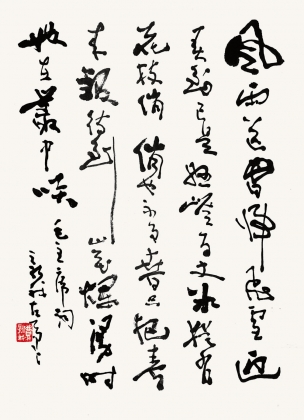 風雨送春歸飛雪迎
春到已是懸崖百丈冰猶有
花枝俏俏也不爭春只把春
來報待到山花爛漫時
她在叢中咲
毛主席詞